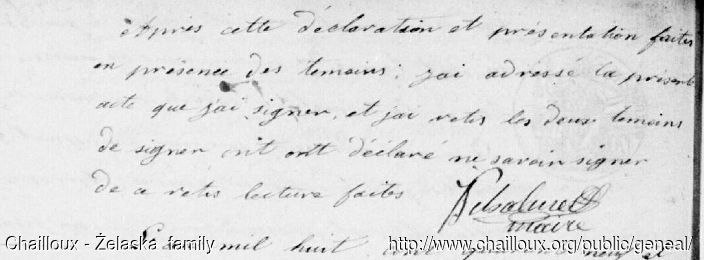 Après cette déclaration et présentation faites
en presence des temoins; jai adressé la présent
acte que jai signer, et jai retis les deux temoins
de signer ont déclaré ne savoir signer
de a retis lecture faites
maire
mil huit cent quarante neuf
Chailloux - Żelaska family
http://www.chailloux.org/public/geneal/